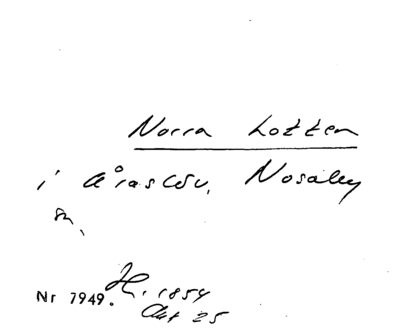 Norra Lotten
i Åraslöv, Nosaby
sn,
Nr 7949. H. 1854
Akt 25